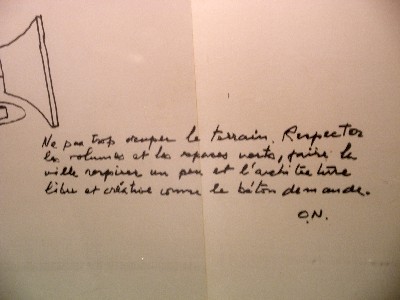 Ne pas trop occuper le terrain. Respecter
les volumes et les espaces verts, faire la
ville respirer un peu et l'architecture
libre et créative comme le béton demande.
O.N.